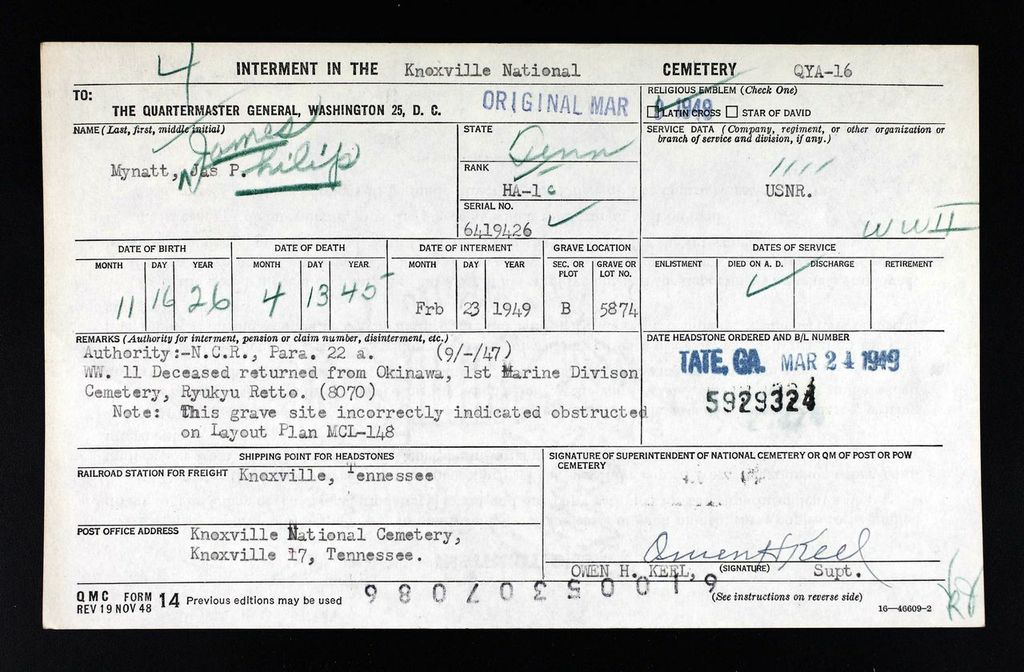 4
INTERMENT IN THE Knoxville National CEMETERY QYA-16
TO:
THE QUARTERMASTER GENERAL, WASHINGTON 25, D. C.
ORIGINAL MAR 9 1949
RELIGIOUS EMBLEM (Check One)
LATIN CROSS STAR OF DAVID
NAME (Last, first, middle initial)
James Philip
Mynatt, Jas P.
STATE
Tenn
RANK
HA-1c
SERIAL NO.
6419426
SERVICE DATA (Company, regiment, or other organization or branch of service and division, if any.)
USNR.
WWII
DATE OF BIRTH DATE OF DEATH DATE OF INTERMENT GRAVE LOCATION DATES OF SERVICE
MONTH DAY YEAR MONTH DAY YEAR MONTH DAY YEAR SEC. OR PLOT GRAVE OR LOT NO. ENLISTMENT DIED ON A. D. DISCHARGE RETIREMENT
11 16 26 4 13 45 Frb 23 1949 B 5874
REMARKS (Authority for interment, pension or claim number, disinterment, etc.)
Authority:-N.C.R., Para. 22 a. (9/-/47)
WW. 11 Deceased returned from Okinawa, 1st Marine Divison
Cemetery, Ryukyu Retto. (8070)
Note: This grave site incorrectly indicated obstructed
on Layout Plan MCL-148
DATE HEADSTONE ORDERED AND B/L NUMBER
TATE, GA. MAR 24 1949
5929324
SHIPPING POINT FOR HEADSTONES
RAILROAD STATION FOR FREIGHT Knoxville, Tennessee
POST OFFICE ADDRESS Knoxville National Cemetery,
Knoxville 17, Tennessee.
SIGNATURE OF SUPERINTENDENT OF NATIONAL CEMETERY OR QM OF POST OR POW CEMETERY
Owen H Keel
OWEN H. KEEL, (SIGNATURE) Supt.
QMC FORM 14 Previous editions may be used
REV 19 NOV 48
61005307086
(See instructions on reverse side)
16—46609-2